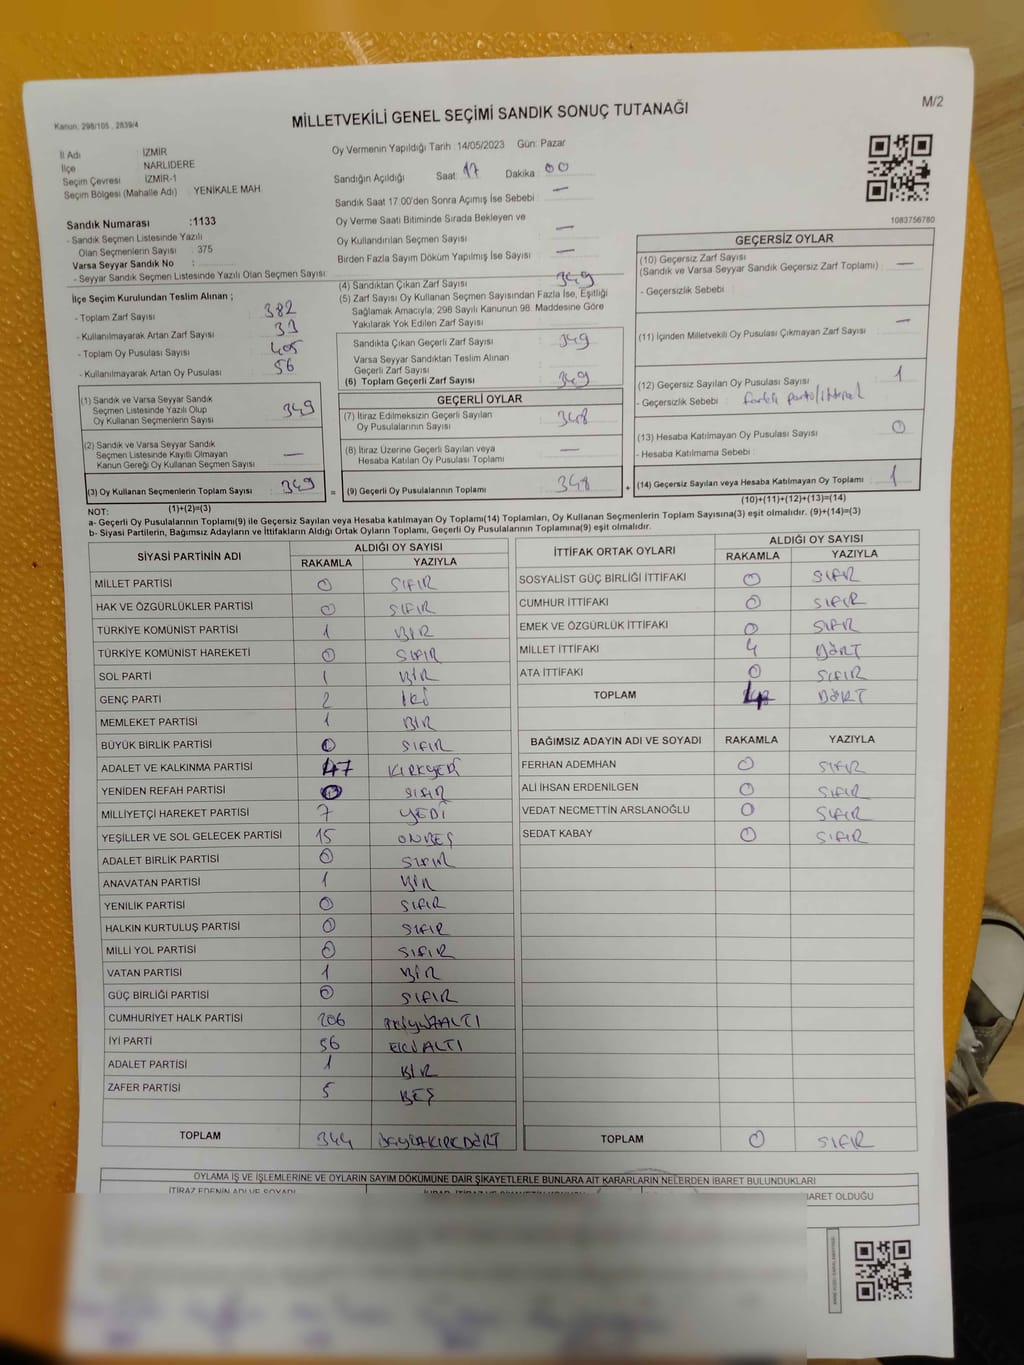 Kanun, 298/105 , 2839/4
MİLLETVEKİLİ GENEL SEÇİMİ SANDIK SONUÇ TUTANAĞI
M/2
İl Adı : İZMİR
İlçe NARLIDERE
Seçim Çevresi İZMİR-1
Seçim Bölgesi (Mahalle Adı) : YENİKALE MAH.
Sandık Numarası :1133
- Sandık Seçmen Listesinde Yazılı
Olan Seçmenlerin Sayısı : 375
Varsa Seyyar Sandık No :
- Seyyar Sandık Seçmen Listesinde Yazılı Olan Seçmen Sayısı:
Oy Vermenin Yapıldığı Tarih :14/05/2023 Gün: Pazar
Sandığın Açıldığı Saat: 17 Dakika : 00
Sandık Saat 17.00'den Sonra Açımış İse Sebebi : —
Oy Verme Saati Bitiminde Sırada Bekleyen ve
Oy Kullandırılan Seçmen Sayısı : —
Birden Fazla Sayım Döküm Yapılmış İse Sayısı : —
1083756780
İlçe Seçim Kurulundan Teslim Alınan ;
- Toplam Zarf Sayısı : 382
- Kullanılmayarak Artan Zarf Sayısı : 33
- Toplam Oy Pusulası Sayısı : 405
- Kullanılmayarak Artan Oy Pusulası : 56
(1) Sandık ve Varsa Seyyar Sandık
Seçmen Listesinde Yazılı Olup
Oy Kullanan Seçmenlerin Sayısı : 349
(2) Sandık ve Varsa Seyyar Sandık
Seçmen Listesinde Kayıtlı Olmayan
Kanun Gereği Oy Kullanan Seçmen Sayısı : —
(3) Oy Kullanan Seçmenlerin Toplam Sayısı : 349
(1)+(2)=(3)
(4) Sandıktan Çıkan Zarf Sayısı : 349
(5) Zarf Sayısı Oy Kullanan Seçmen Sayısından Fazla İse, Eşitliği
Sağlamak Amacıyla, 298 Sayılı Kanunun 98. Maddesine Göre
Yakılarak Yok Edilen Zarf Sayısı :
Sandıkta Çıkan Geçerli Zarf Sayısı : 349
Varsa Seyyar Sandıktan Teslim Alınan
Geçerli Zarf Sayısı :
(6) Toplam Geçerli Zarf Sayısı : 349
GEÇERLİ OYLAR
(7) İtiraz Edilmeksizin Geçerli Sayılan
Oy Pusulalarının Sayısı : 348
(8) İtiraz Üzerine Geçerli Sayılan veya
Hesaba Katılan Oy Pusulası Toplamı : —
= (9) Geçerli Oy Pusulalarının Toplamı : 348
GEÇERSİZ OYLAR
(10) Geçersiz Zarf Sayısı
(Sandık ve Varsa Seyyar Sandık Geçersiz Zarf Toplamı) : —
- Geçersizlik Sebebi :
(11) İçinden Milletvekili Oy Pusulası Çıkmayan Zarf Sayısı : —
(12) Geçersiz Sayılan Oy Pusulası Sayısı : 1
- Geçersizlik Sebebi : farklı parti/ittifak
(13) Hesaba Katılmayan Oy Pusulası Sayısı : 0
- Hesaba Katılmama Sebebi :
+ (14) Geçersiz Sayılan veya Hesaba Katılmayan Oy Toplamı : 1
(10)+(11)+(12)+(13)=(14)
NOT:
a- Geçerli Oy Pusulalarının Toplamı(9) ile Geçersiz Sayılan veya Hesaba katılmayan Oy Toplamı(14) Toplamları, Oy Kullanan Seçmenlerin Toplam Sayısına(3) eşit olmalıdır. (9)+(14)=(3)
b- Siyasi Partilerin, Bağımsız Adayların ve İttifakların Aldığı Ortak Oyların Toplamı, Geçerli Oy Pusulalarının Toplamına(9) eşit olmalıdır.
SİYASİ PARTİNİN ADI ALDIĞI OY SAYISI
RAKAMLA YAZIYLA
MİLLET PARTİSİ 0 SIFIR
HAK VE ÖZGÜRLÜKLER PARTİSİ 0 SIFIR
TÜRKİYE KOMÜNİST PARTİSİ 1 BİR
TÜRKİYE KOMÜNİST HAREKETİ 0 SIFIR
SOL PARTİ 1 BİR
GENÇ PARTİ 2 İKİ
MEMLEKET PARTİSİ 1 BİR
BÜYÜK BİRLİK PARTİSİ 0 SIFIR
ADALET VE KALKINMA PARTİSİ 47 KIRKYEDİ
YENİDEN REFAH PARTİSİ 0 SIFIR
MİLLİYETÇİ HAREKET PARTİSİ 7 YEDİ
YEŞİLLER VE SOL GELECEK PARTİSİ 15 ONBEŞ
ADALET BİRLİK PARTİSİ 0 SIFIR
ANAVATAN PARTİSİ 1 BİR
YENİLİK PARTİSİ 0 SIFIR
HALKIN KURTULUŞ PARTİSİ 0 SIFIR
MİLLİ YOL PARTİSİ 0 SIFIR
VATAN PARTİSİ 1 BİR
GÜÇ BİRLİĞİ PARTİSİ 0 SIFIR
CUMHURİYET HALK PARTİSİ 206 İKİYÜZALTI
İYİ PARTİ 56 ELLİALTI
ADALET PARTİSİ 1 BİR
ZAFER PARTİSİ 5 BEŞ
TOPLAM 344 ÜÇYÜZKIRKDÖRT
İTTİFAK ORTAK OYLARI ALDIĞI OY SAYISI
RAKAMLA YAZIYLA
SOSYALİST GÜÇ BİRLİĞİ İTTİFAKI 0 SIFIR
CUMHUR İTTİFAKI 0 SIFIR
EMEK VE ÖZGÜRLÜK İTTİFAKI 0 SIFIR
MİLLET İTTİFAKI 4 DÖRT
ATA İTTİFAKI 0 SIFIR
TOPLAM 4 DÖRT
BAĞIMSIZ ADAYIN ADI VE SOYADI RAKAMLA YAZIYLA
FERHAN ADEMHAN 0 SIFIR
ALİ İHSAN ERDENİLGEN 0 SIFIR
VEDAT NECMETTİN ARSLANOĞLU 0 SIFIR
SEDAT KABAY 0 SIFIR
TOPLAM 0 SIFIR
OYLAMA İŞ VE İŞLEMLERİNE VE OYLARIN SAYIM DÖKÜMÜNE DAİR ŞİKAYETLERLE BUNLARA AİT KARARLARIN NELERDEN İBARET BULUNDUKLARI
İTİRAZ EDENİN ADI VE SOYADI
BARET OLDUĞU